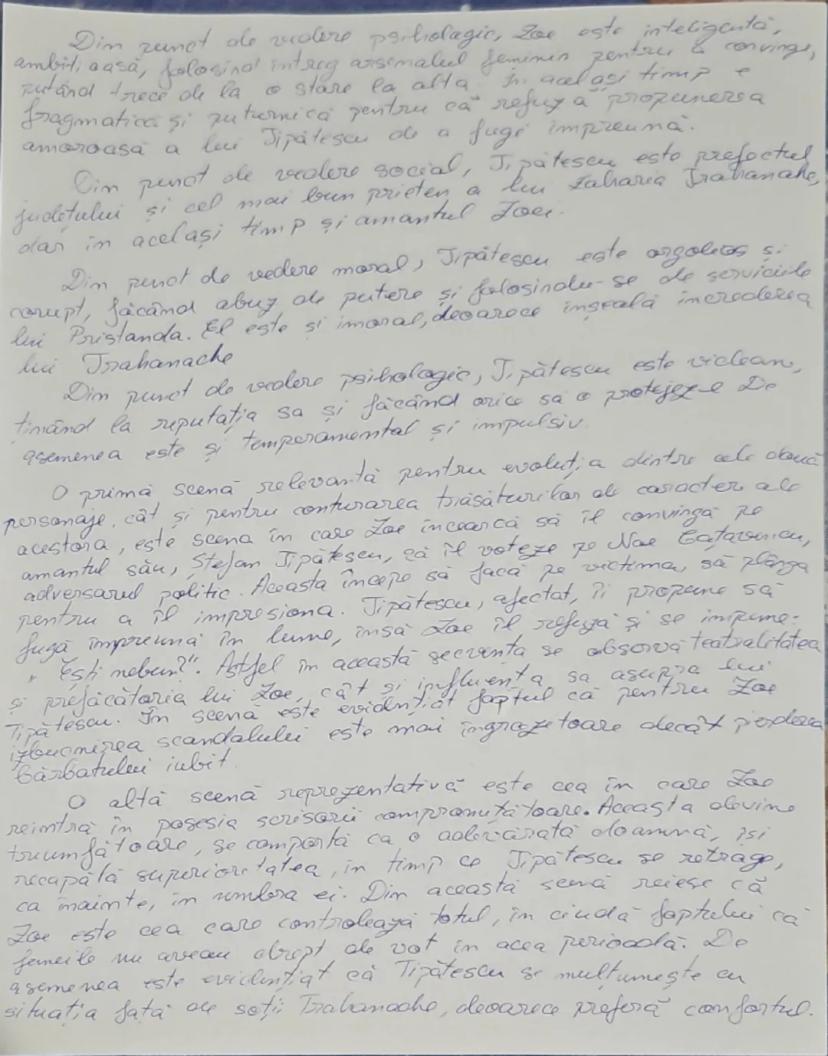 Din punct de vedere psihologic, Zoe este inteligentă,
ambițioasă, folosind întreg arsenalul feminin pentru a convinge,
putând trece de la o stare la alta. În același timp e
fragmatică și puternică pentru că refuză propunerea
amoroasă a lui Tipătescu de a fugi împreună.
Din punct de vedere social, Tipătescu este prefectul
județului și cel mai bun prieten a lui Zaharia Trahanache,
dar în același timp și amantul Zoei.
Din punct de vedere moral, Tipătescu este orgolios și
corupt, făcând abuz de putere și folosindu-se de serviciile
lui Pristanda. El este și imoral, deoarece înșeală încrederea
lui Trahanache
Din punct de vedere psihologic, Tipătescu este viclean,
ținând la reputația sa și făcând orice să o protejeze De
asemenea este și temperamental și impulsiv.
O primă scenă relevantă pentru evoluția dintre cele două
personaje, cât și pentru conturarea trăsăturilor de caracter ale
acestora, este scena în care Zoe încearcă să îl convingă pe
amantul său, Ștefan Tipătescu, să îl voteze pe Nae Cațavencu,
adversarul politic. Aceasta începe să facă pe victima, să plângă
pentru a îl impresiona. Tipătescu, afectat, îi propune să
fugă împreună în lume, însă Zoe îl refuză și se impune:
„Ești nebun?". Astfel în această secvență se observă teatralitatea
și prefăcătoria lui Zoe, cât și influența sa asupra lui
Tipătescu. În scenă este evidențiat faptul că pentru Zoe
izbucnirea scandalului este mai îngrozitoare decât pierderea
bărbatului iubit.
O altă scenă reprezentativă este cea în care Zoe
reintră în posesia scrisorii compromițătoare. Aceasta devine
triumfătoare, se comportă ca o adevărată doamnă, își
recapătă superioritatea, în timp ce Tipătescu se retrage,
ca înainte, în umbra ei. Din această scenă reiese că
Zoe este cea care controlează totul, în ciuda faptului că
femeile nu aveau drept de vot în acea perioadă. De
asemenea este evidențiat că Tipătescu se mulțumește cu
situația față de soții Trahanache, deoarece preferă confortul.